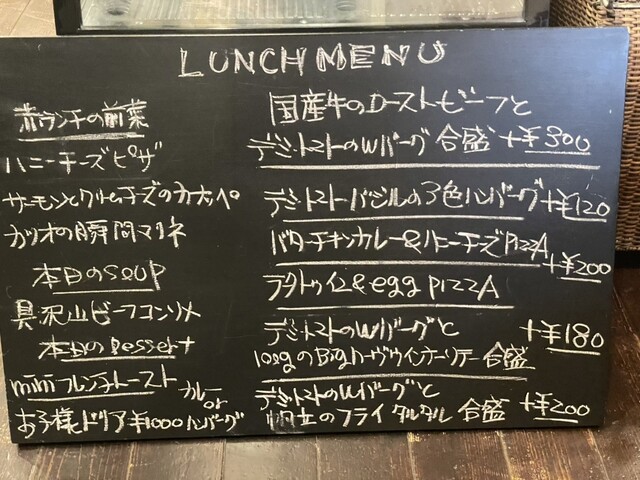 LUNCH MENU
赤ランチの前菜
ハニーチーズピザ
サーモンとクリームチーズのカナッペ
カツオの瞬間マリネ
本日のSOUP
具沢山ビーフコンソメ
本日のDessert
miniフレンチトースト
お子様ドリア¥1000 カレー or ハンバーグ
国産牛のローストビーフと
デミ・トマトのWバーグ 合盛 +¥300
デミ・トマト・バジルの3色ハンバーグ +¥120
バターチキンカレー&ハニーチーズPIZZA +¥200
ラタトゥイユ&egg PIZZA
デミ・トマトのWバーグと +¥180
100gのBig 合盛
デミ・トマトのWバーグと
帆立のフライ タルタル 合盛 +¥200